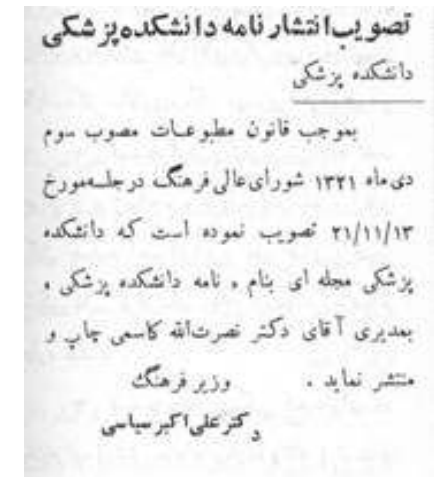 تصویب انتشار نامه دانشکده پزشکی
دانشکده پزشکی
بموجب قانون مطبوعات مصوب سوم
دی ماه ۱۳۲۱ شورای عالی فرهنگ در جلسه مورخ
۲۱/۱۱/۱۳ تصویب نموده است که دانشکده
پزشکی مجله ای بنام « نامه دانشکده پزشکی »
بمدیری آقای دکتر نصرت‌الله کاسمی چاپ و
منتشر نماید . وزیر فرهنگ
دکتر علی اکبر سیاسی